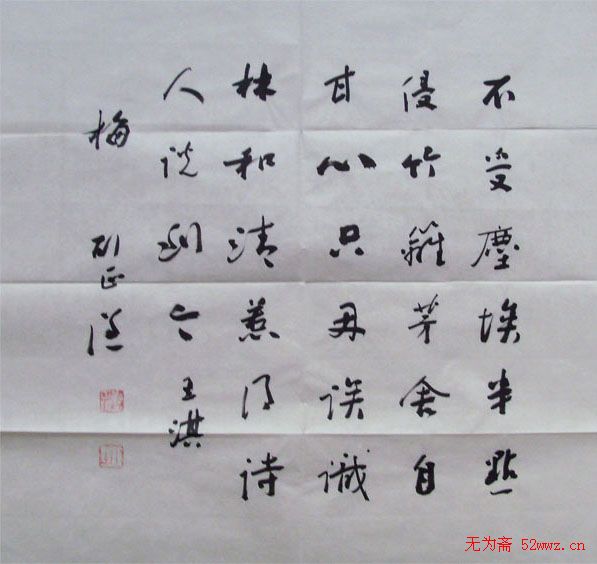 不受塵埃半點
侵竹籬茅舍自
甘心只因误識
林和清惹得诗
人说到今 王淇
梅 刘正
无为斋 52wwz.cn